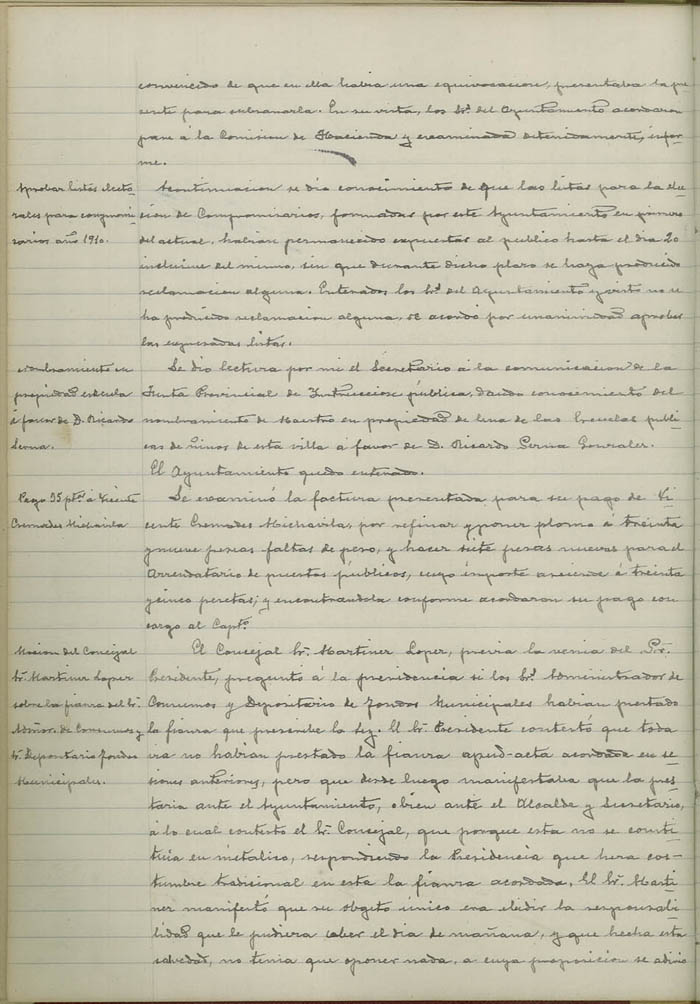 convencido de que en ella habia una equivocacion, presentaba la pre
sente para subsanarla. En su vista, los Srs. del Ayuntamiento acordaron
pase á la Comision de Hacienda y examinada detenidamente, infor-
me.
Aprobar listas electo-
rales para compromi-
sarios año 1910.
Acontinuacion se dió conocimiento de que las listas para la elec-
cion de Compromisarios, formadas por este Ayuntamiento en primero
del actual, habian permanecido expuestas al publico hasta el dia 20
inclusive del mismo, sin que durante dicho plazo se haya producido
reclamacion alguna. Enterados los Srs. del Ayuntamiento y visto no se
ha producido reclamacion alguna, se acordó por unanimidad aprobar
las expresadas listas.
Nombramiento en
propiedad escuela
á favor de D. Ricardo
Serna.
Se dió lectura por mi el Secretario á la comunicacion de la
Junta Provincial de Instruccion pública, dando conocimiento del
nombramiento de Maestro en propiedad de una de las Escuelas publi-
cas de niños de esta villa á favor de D. Ricardo Serna Gonzalez.
El Ayuntamiento quedo enterado.
Pago 35 ptas. á Vicente
Cremades Michavila
Se examinó la factura presentada para su pago de Vi-
cente Cremades Michavila, por refinar y poner plomo á treinta
y nueve pesas faltas de peso, y hacer siete pesas nuevas para el
Arrendatario de puestos públicos, cuyo importe asciende á treinta
y cinco pesetas; y encontrandola conforme acordaron su pago con
cargo al Capto.
Mocion del Concejal
Sr. Martinez Lopez
sobre la fianza del Sr.
Admor. de Consumos y
Sr. Depositario fondos
Municipales.
El Concejal Sr. Martinez Lopez, previa la venia del Sr.
Presidente, preguntó á la presidencia si los Srs. Administrador de
Consumos y Depositario de fondos Municipales habian prestado
la fianza que prescribe la ley. El Sr. Presidente contestó que toda
via no habian prestado la fianza apud-acta acordada en se-
siones anteriores, pero que desde luego manifestaba que la pres-
taria ante el Ayuntamiento, obien ante el Alcalde y Secretario,
á lo cual contestó el Sr. Concejal, que porque esta no se consti-
tuia en metalico, respondiendo la Presidencia que hera cos-
tumbre tradicional en esta la fianza acordada. El Sr. Marti-
nez manifestó que su obgeto único era eludir la responsabi-
lidad que le pudiera caber el dia de mañana, y que hecha esta
salvedad, no tenia que oponer nada, a cuya proposicion se adirio